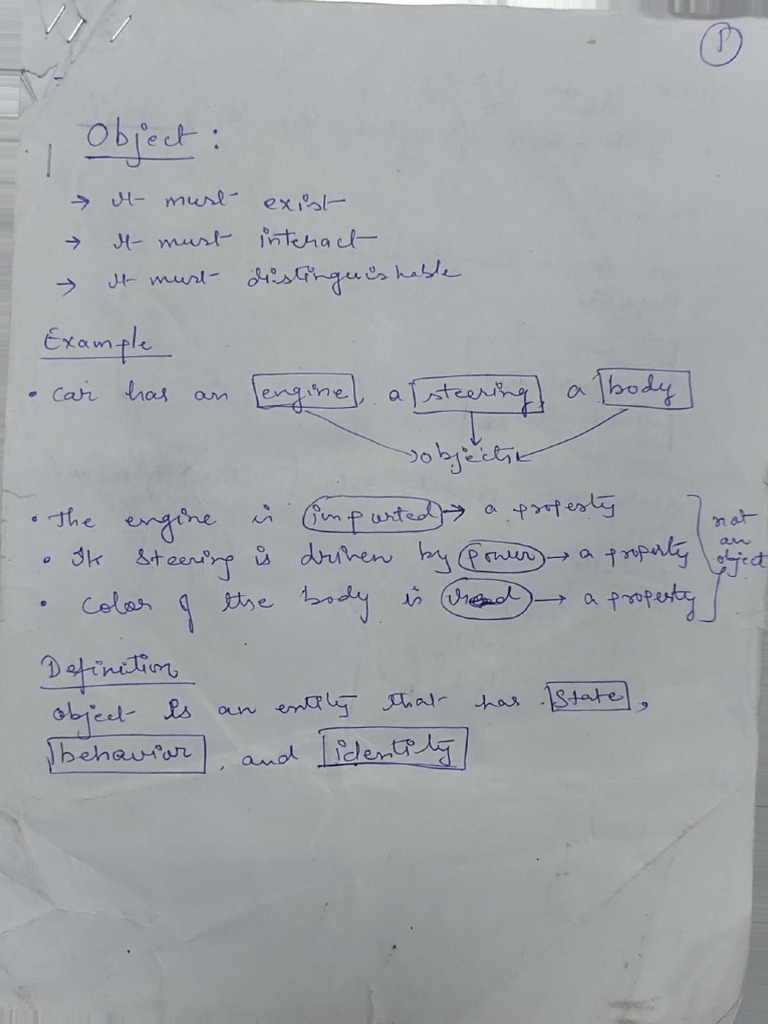 1
Object :
→ It must exist
→ It must interact
→ It must distinguishable
Example
• Car has an engine, a steering, a body
objects
• The engine is imported → a property
• The steering is driven by power → a property
• Color of the body is red → a property
not an object
Definition
Object is an entity that has state,
behavior, and identity